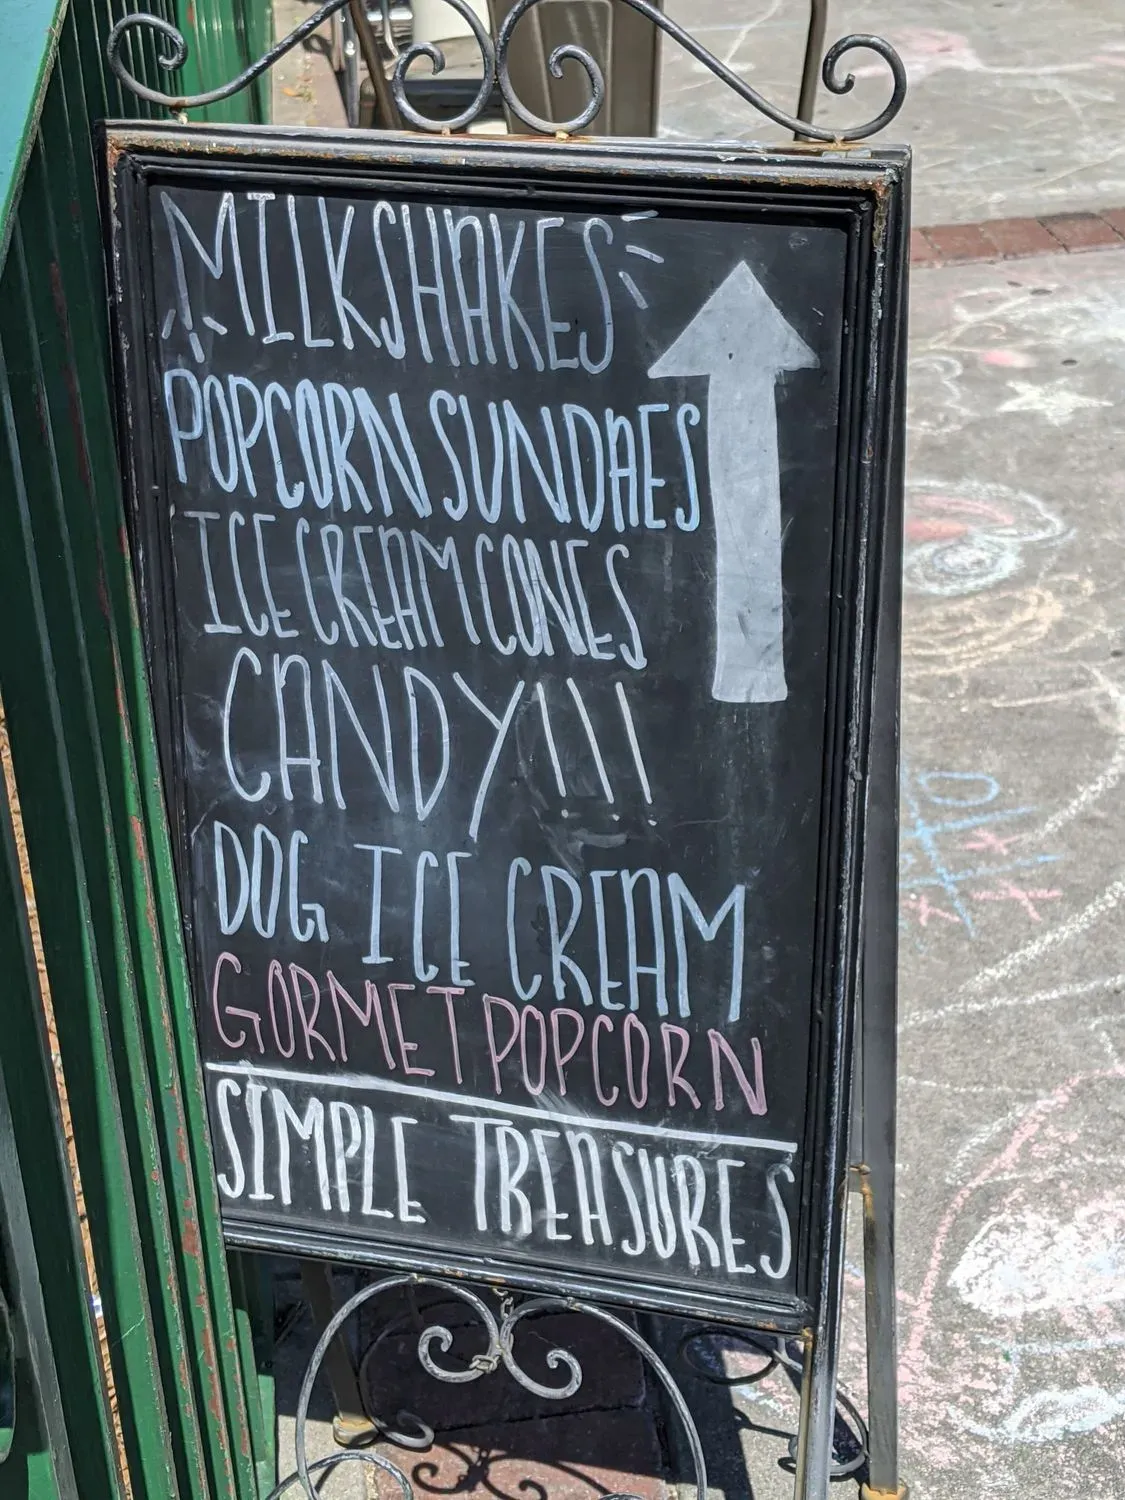 MILKSHAKES
POPCORN SUNDAES
ICE CREAM CONES
CANDY!!!
DOG ICE CREAM
GORMET POPCORN
SIMPLE TREASURES